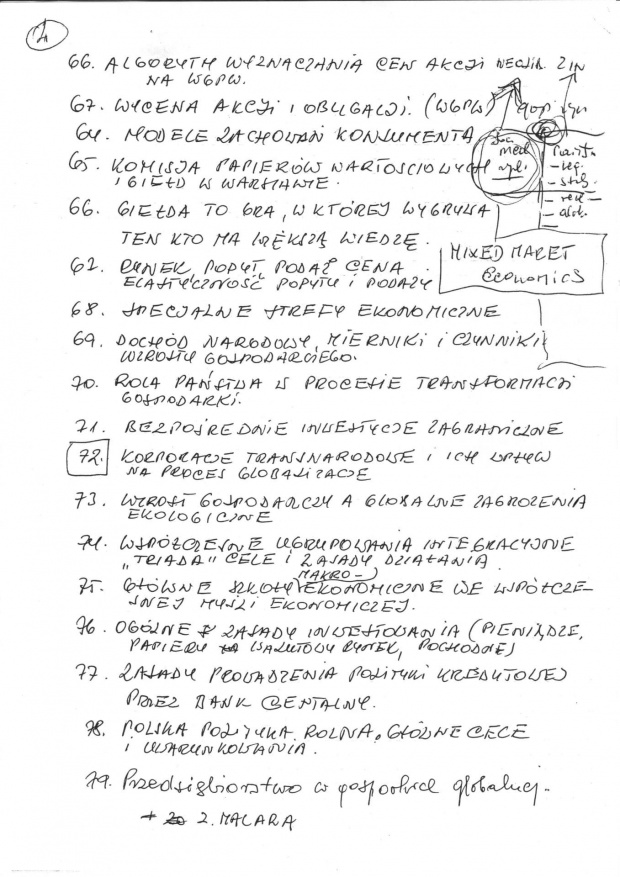 2
66. ALGORYTM WYZNACZANIA CEN AKCJI
NA WGPW.
67. WYCENA AKCJI I OBLIGACJI. (WGPW)
64. MODELE ZACHOWAŃ KONSUMENTA
65. KOMISJA PAPIERÓW WARTOŚCIOWYCH
I GIEŁD W WARSZAWIE.
66. GIEŁDA TO GRA, W KTÓREJ WYGRYWA
TEN KTO MA WIĘKSZĄ WIEDZĘ.
MIXED MARET
economics
62. RYNEK, POPYT, PODAŻ CENA
ELASTYCZNOŚĆ POPYTU I PODAŻY
68. SPECJALNE STREFY EKONOMICZNE
69. DOCHÓD NARODOWY, MIERNIKI I CZYNNIKI
WZROSTU GOSPODARCZEGO.
70. ROLA PAŃSTWA W PROCESIE TRANSFORMACJI
GOSPODARKI.
71. BEZPOŚREDNIE INWESTYCJE ZAGRANICZNE
72. KORPORACJE TRANSNARODOWE I ICH WPŁYW
NA PROCES GLOBALIZACJE
73. WZROST GOSPODARCZY A GLOBALNE ZAGROŻENIA
EKOLOGICZNE
74. WSPÓŁCZESNE UGRUPOWANIA INTEGRACYJNE
„TRIADA” CELE I ZASADY DZIAŁANIA
MAKRO-
75. GŁÓWNE SZKOŁY EKONOMICZNE WE WSPÓŁCZE-
SNEJ MYŚLI EKONOMICZEJ.
76. OGÓLNE ZASADY INWESTOWANIA (PIENIĄDZE,
PAPIERY WALUTOWY RYNEK, POCHODNE)
77. ZASADY PROWADZENIA POLITYKI KREDYTOWEJ
PRZEZ BANK CENTALNY.
78. POLSKA POLITYKA ROLNA. GŁÓWNE CELE
I UWARUNKOWANIA.
79. Przedsiębiorstwo w gospodarce globalnej.
+ Z. MALARA